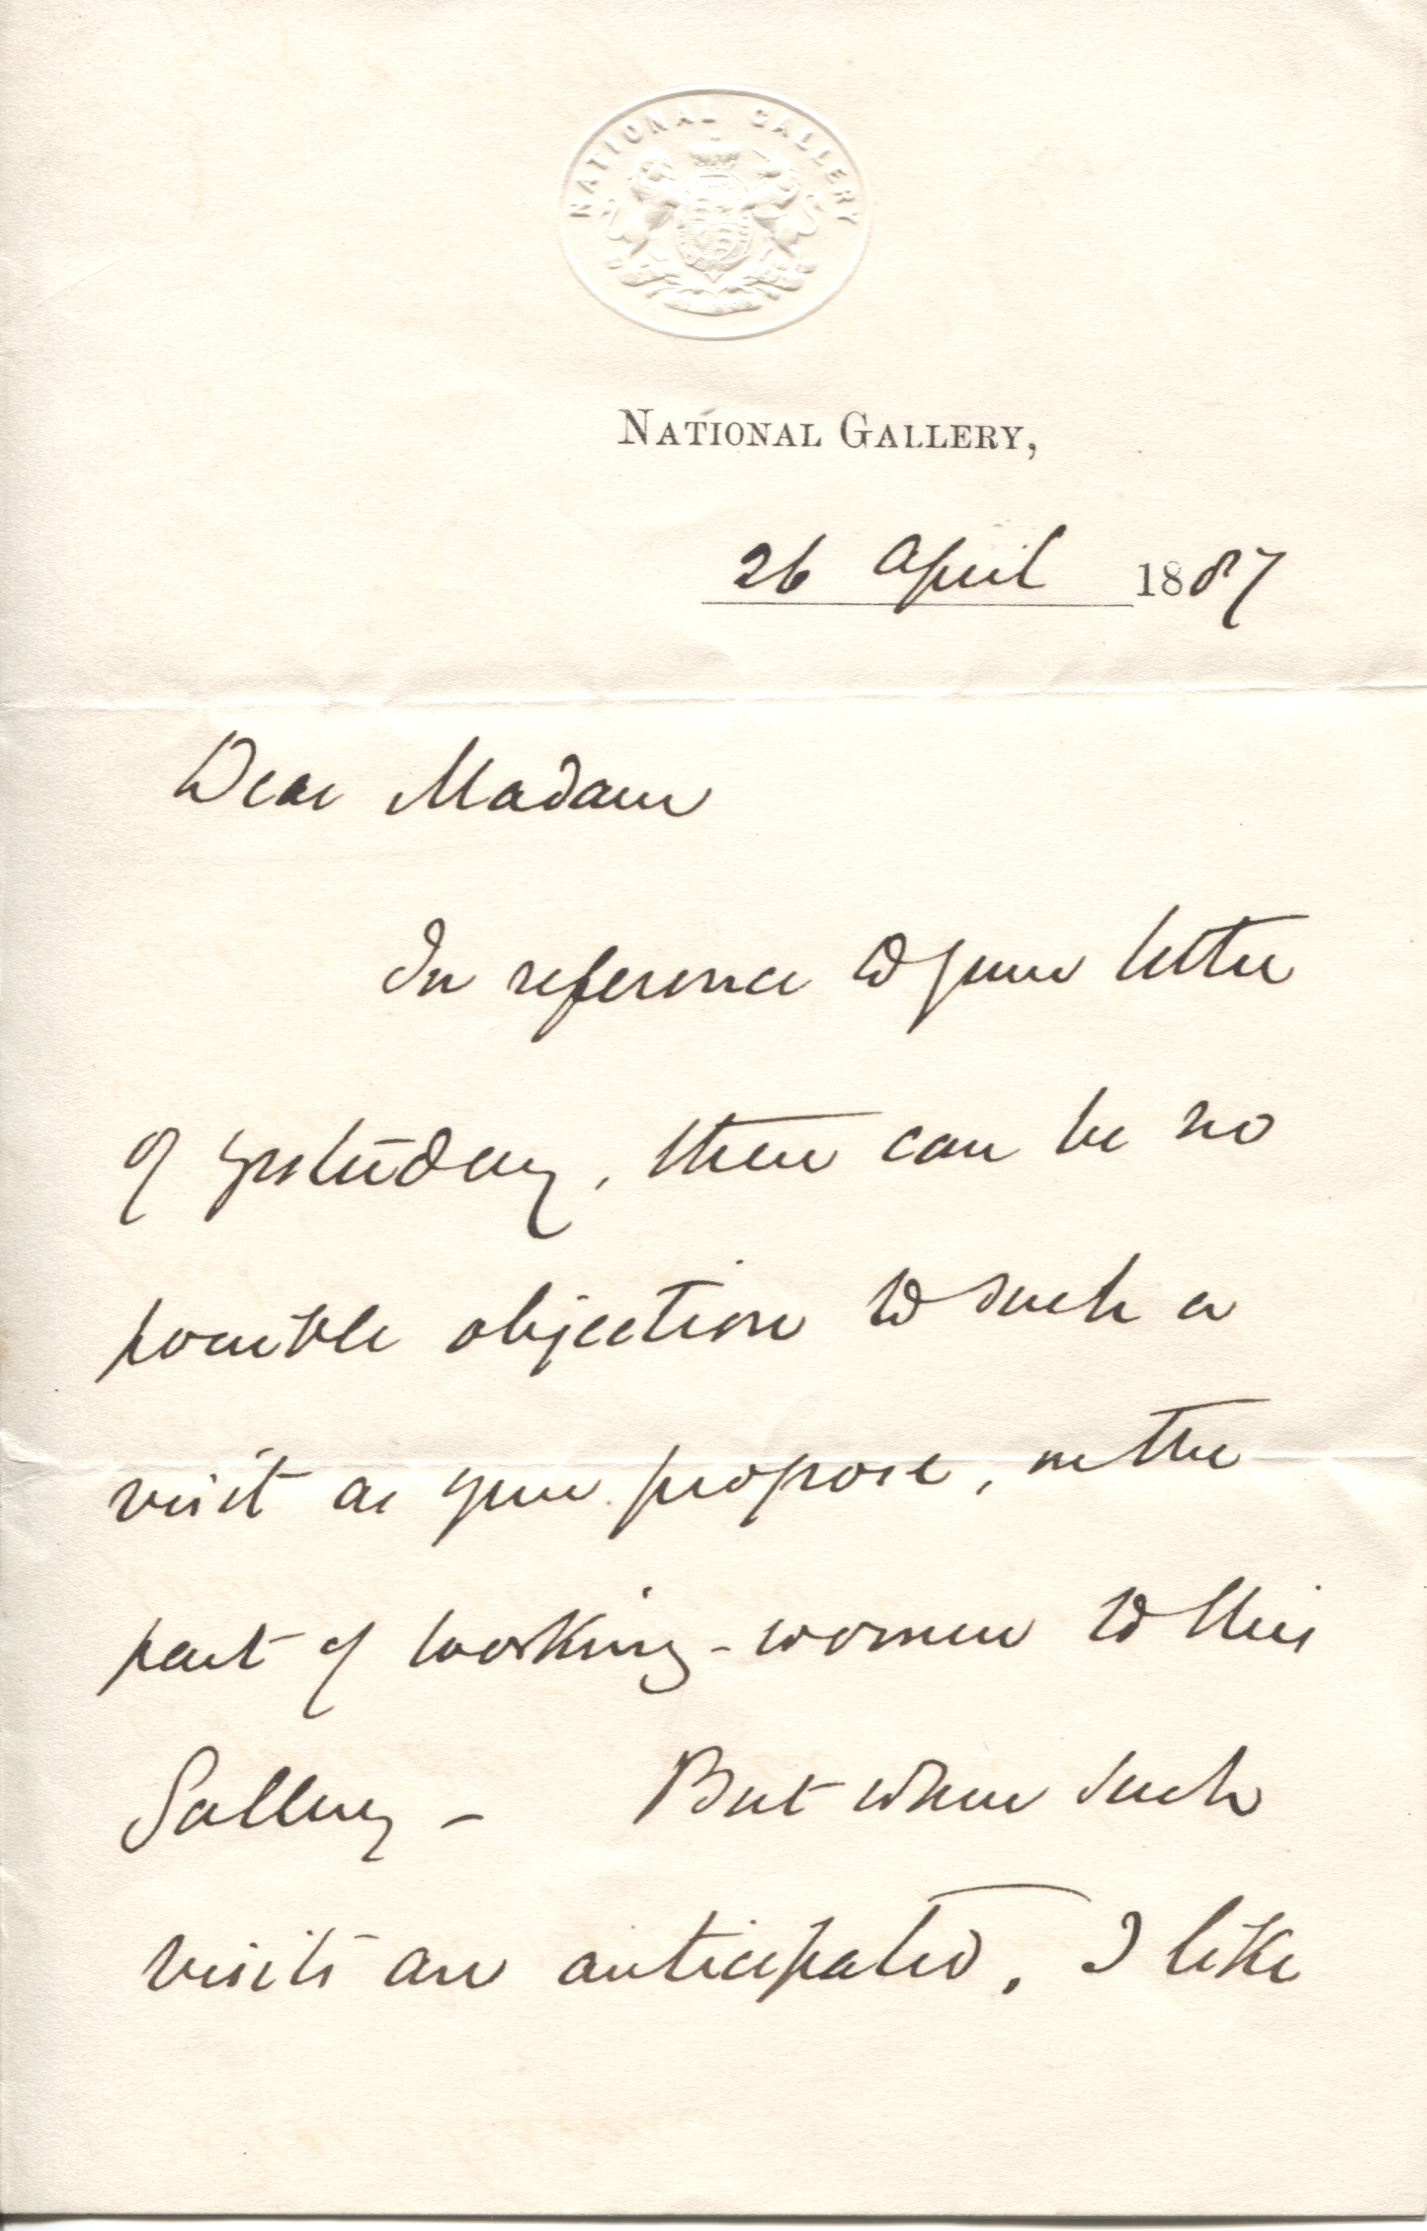 NATIONAL GALLERY
NATIONAL GALLERY,
26 April 1887
Dear Madam
In reference to your letter
of yesterday, there can be no
possible objection to such a
visit as you propose, on the
part of working-women to this
Gallery - But when such
visits are anticipated, I like